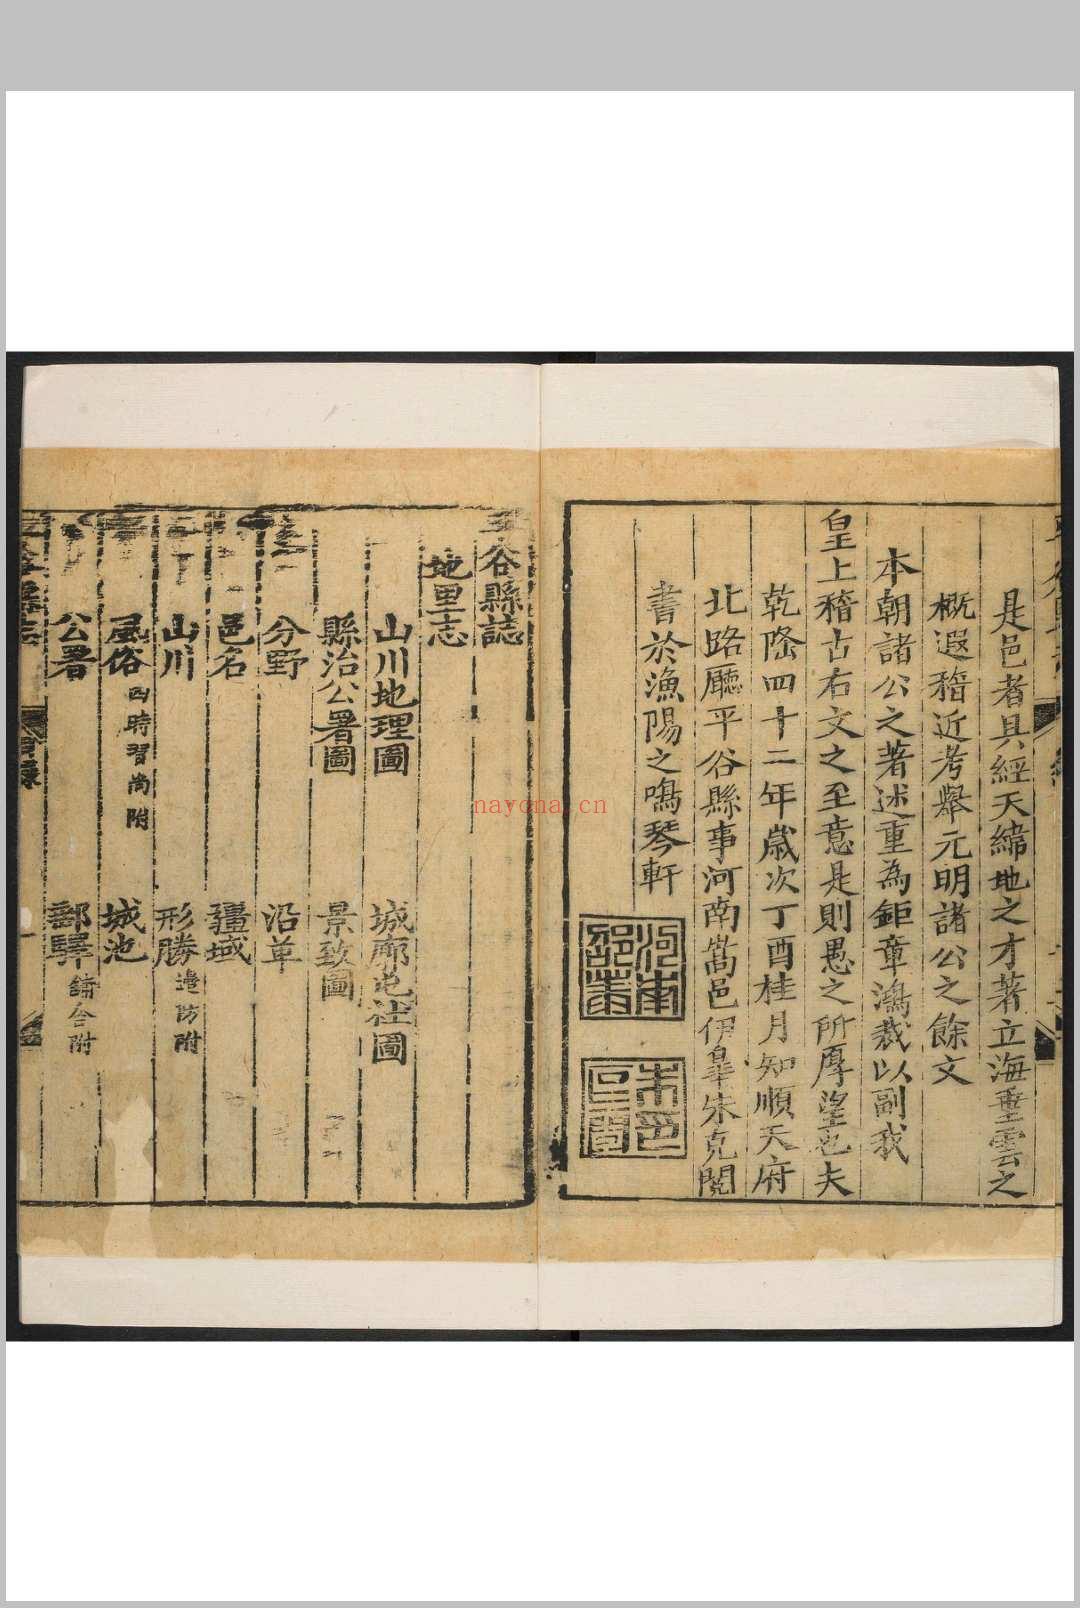 是邑者具經天緯地之才著立海垂雲之
概遐稽近考舉元明諸公之餘文
本朝諸公之著述重為鉅章鴻裁以副我
皇上稽古右文之至意是則愚之所厚望也夫
乾隆四十二年歲次丁酉桂月知順天府
北路廳平谷縣事河南嵩邑伊臯朱克閱
書於漁陽之鳴琴軒
谷縣誌
地里志
山川地理圖 城廓屯社圖
縣治公署圖 景致圖
分野 沿革
邑名 疆域
山川 形勝 邊防附
風俗 四時習尚附 城池
公署 郵驛 鋪舍附
目錄
nayona.cn